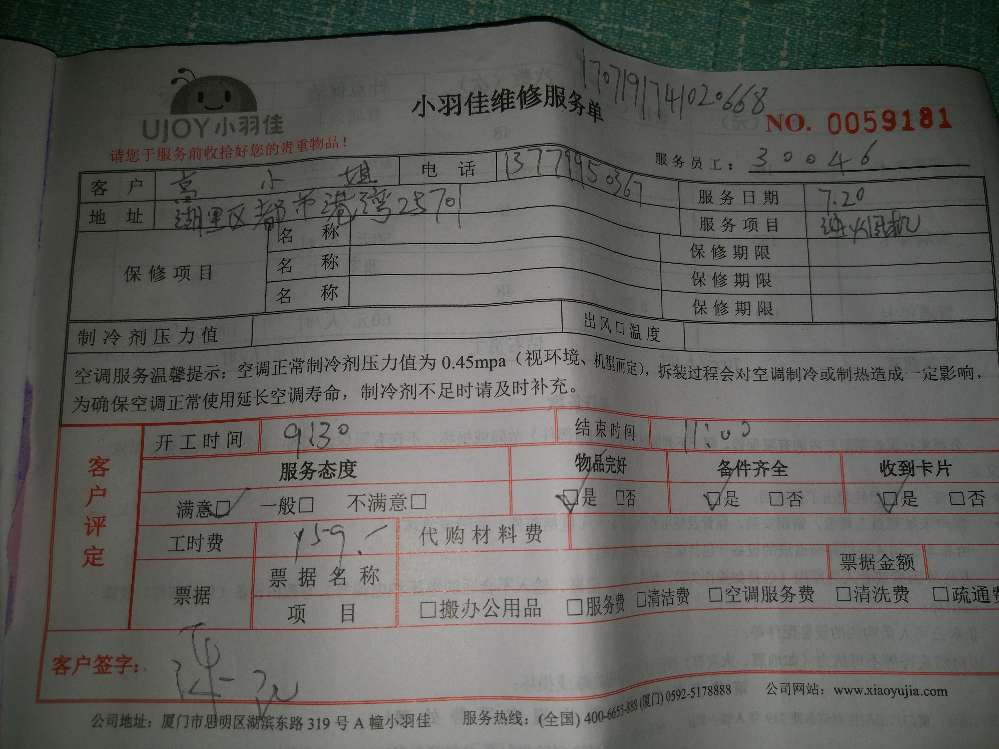 1707191741020668
UJOY小羽佳
小羽佳维修服务单
NO. 0059181
请您于服务前收拾好您的贵重物品！
服务员工： 30046
客 户 高小姐 电 话 13779950367 服务日期 7.20
地 址 湖里区都市港湾25701 服务项目
保修项目 名 称 保修期限
名 称 保修期限
名 称 保修期限
制冷剂压力值 出风口温度
空调服务温馨提示：空调正常制冷剂压力值为 0.45mpa（视环境、机型而定），拆装过程会对空调制冷或制热造成一定影响，
为确保空调正常使用延长空调寿命，制冷剂不足时请及时补充。
客户评定 开工时间 9:30 结束时间 11:00
服务态度 物品完好 备件齐全 收到卡片
满意□ 一般□ 不满意□ □是 □否 □是 □否 □是 □否
工时费 159.- 代购材料费
票据 票据名称 票据金额
项 目 □搬办公用品 □服务费 □清洁费 □空调服务费 □清洗费 □疏通费
客户签字：
公司地址：厦门市思明区湖滨东路 319 号 A 幢小羽佳 服务热线：(全国) 400-6655-888 (厦门) 0592-5178888 公司网站：www.xiaoyujia.com